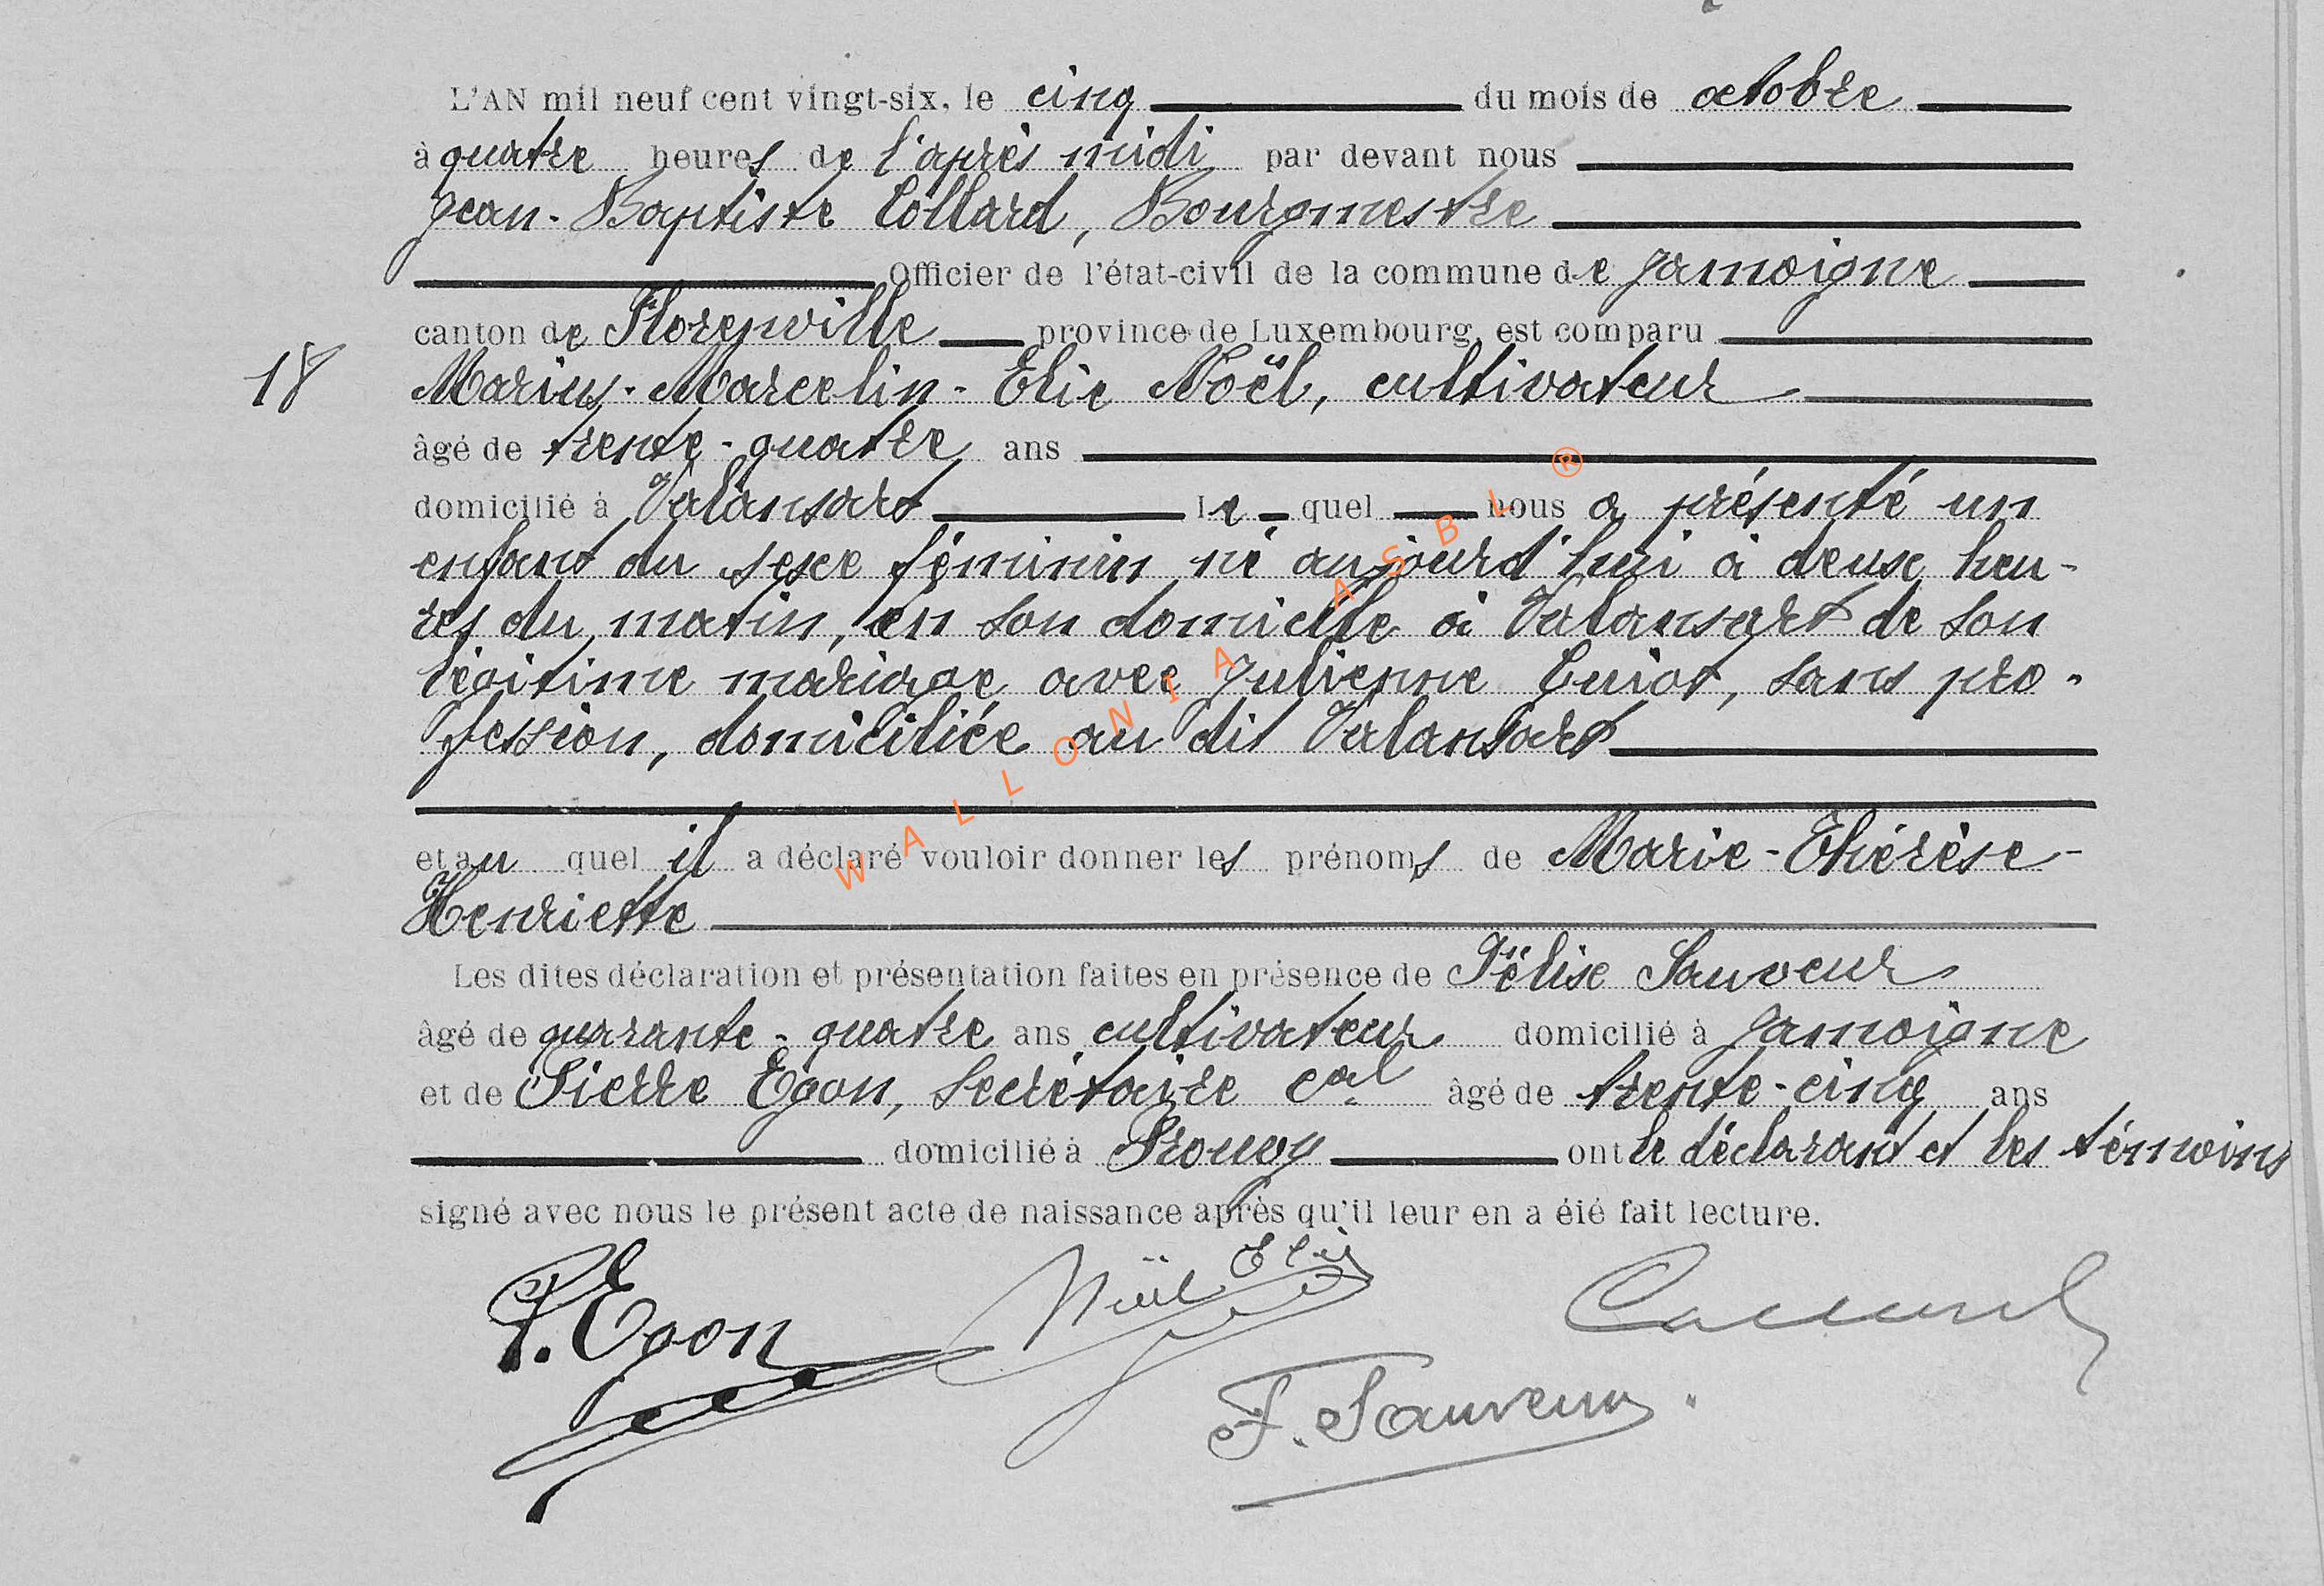 L'AN mil neuf cent vingt-six, le cinq du mois de octobre
à quatre heures de l'après midi par devant nous
Jean-Baptiste Collard, Bourgmestre
Officier de l'état-civil de la commune de Jamoigne
canton de Florenville province de Luxembourg, est comparu
18 Marius-Marcelin-Elie Noël, cultivateur
âgé de trente-quatre ans
domicilié à Valansart le quel nous a présenté un
enfant du sexe féminin né aujourd'hui à deux heu-
res du matin, en son domicile à Valansart de son
légitime mariage avec Julienne Guiot, sans pro-
fession, domiciliée au dit Valansart
et au quel il a déclaré vouloir donner les prénoms de Marie-Thérèse-
Henriette
Les dites déclaration et présentation faites en présence de Félix Sauveur
âgé de quarante-quatre ans cultivateur domicilié à Jamoigne
et de Pierre Egon, secrétaire cal âgé de trente-cinq ans
domicilié à Prouvy ont le déclarant et les témoins
signé avec nous le présent acte de naissance après qu'il leur en a été fait lecture.
P. Egon Noël Elie Collard
F. Sauveur.
WALLONIA ASBL ®